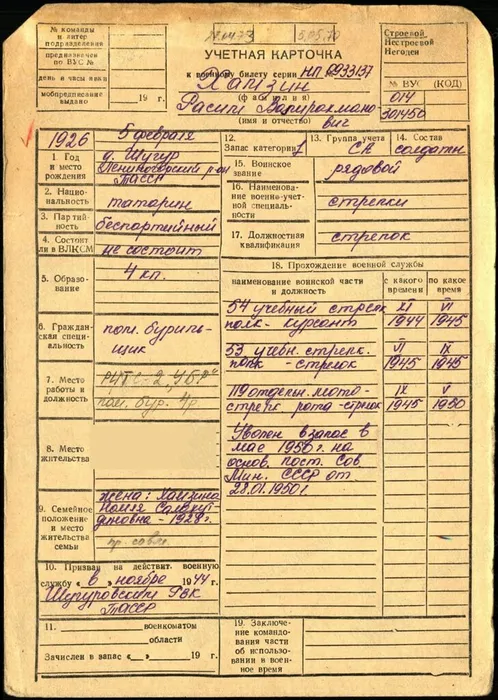 № команды
и литер
подразделения
предназначен
по ВУС №
день и часы явки
мобпредписание
выдано
19 г.
5.05.70
УЧЕТНАЯ КАРТОЧКА
к военному билету серии НП № 0933137
Хамзин
(фамилия)
(имя и отчество)
Строевой
Нестроевой
Негоден
№ ВУС (КОД)
014
301450
1926 5 февраля
д. Шугур
Лениногорский р-он
ТАССР
1. Год
и место
рождения
2. Нацио-
нальность
татарин
3. Партий-
ность
беспартийный
4. Состоит
ли в ВЛКСМ
не состоит
5. Образо-
вание
4 кл.
6. Граждан-
ская специ-
альность
пом. буриль-
щик
7. Место
работы и
должность
пом. бур. 4р.
8. Место
жительства
9. Семейное
положение
и место
жительства
семьи
жена: Хамзина
1928 г.
10. Призван на действит. военную
службу « в » ноябре 1944 г.
Шугуровским РВК
ТАССР
11. военкоматом
области
Зачислен в запас «__» 19 г.
12.
Запас категории 1
13. Группа учета
СА
14. Состав
солдаты
15. Воинское
звание
рядовой
16. Наименование
военно-учет-
ной специаль-
ности
стрелки
17. Должностная
квалификация
стрелок
18. Прохождение военной службы
наименование воинской части
и должность
с какого
времени
по какое
время
54 учебный стрелк
полк - курсант
XI 1944
VI 1945
53 учебн. стрелк.
полк - стрелок
VI 1945
IX 1945
119 отдельн. мото-
стрелк. рота - стрелок
IX 1945
V 1950
Уволен в запас в
мае 1950 г. на
основ. пост. Сов
Мин. СССР от
28.01.1950 г.
19. Заключение
командова-
ния части
об исполь-
зовании в
воен-
ное время